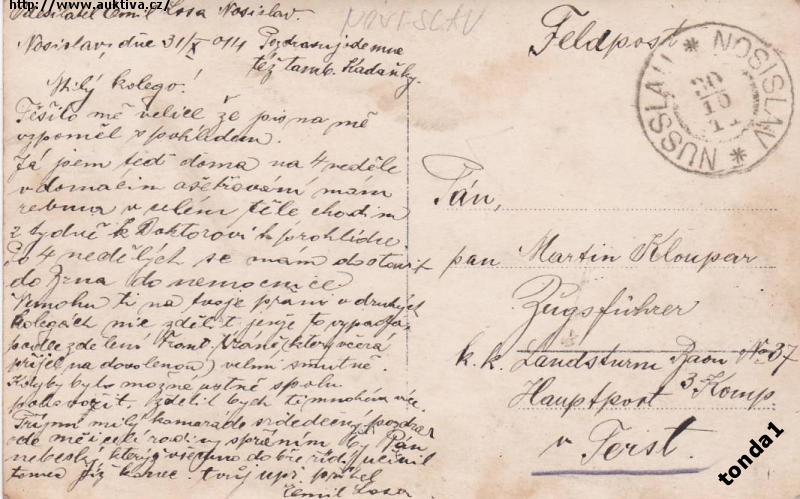 http://www.auktiva.cz/
Odesílatel Emil Losa Nosislav.
Nosislav, dne 31/X 914
Pozdravuj ode mne
též tamb. Kadaňky.
NOSISLAV
Milý kolego!
Těšilo mě velice že jsi na mě
vzpoměl s pohledem.
Já jsem teď doma na 4 neděle
v domacim ošetřování mam
revma v celém těle chodim
2 tydně k Doktorovi k prohlídce
Po 4 nedělých se mam dostavit
do Brna do nemocnice
Nemohu ti na tvoje přani v druhých
kolegách nic zdělit jenže to vypada
podle zdeleni Frant. který včera
přijel na dovolenou) velmi smutně.
Kdyby bylo možne ustně spolu
pohovořit, zdělil bych ti mnohem vice.
Přijmi milý kamarade srdečný pozdrav
ode mě i celé rodiny s přáním by Pán
nebeský který všechno dobře řídi, učinil
tomu již konec. tvůj upř. přítel
Emil Losa
Feldpost
NUSSLAU * NOSISLAV *
30
10
Pán,
pan Martin Kloupar
Zugsführer
k. k. Landsturm Baon No 37
3 Komp.
Hauptpost
v Terst.
tonda1